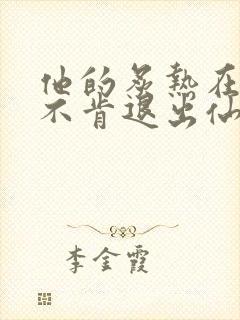 他的炙热在
不肯退出仙
李金霞